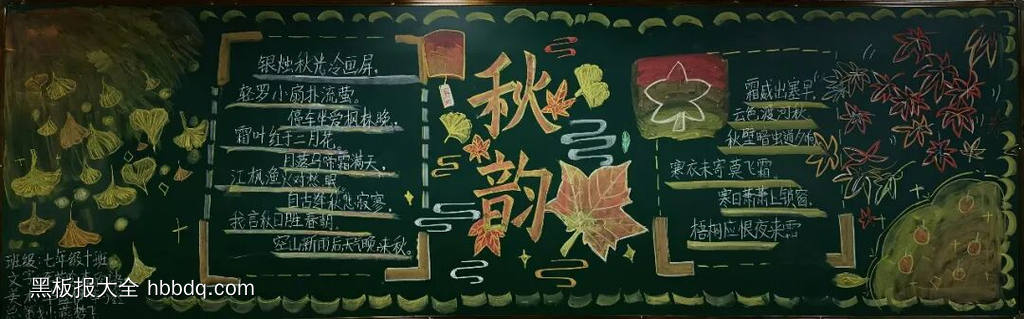 银烛秋光冷画屏,
轻罗小扇扑流萤。
停车坐爱枫林晚,
霜叶红于二月花。
月落乌啼霜满天,
江枫渔火对愁眠
自古逢秋悲寂寥,
我言秋日胜春朝.
空山新雨后天气晚来秋。
秋
韵
霜威出塞早
云色渡河秋
秋壁暗虫通夕响
寒衣未寄莫飞霜
寒日萧萧上锁窗,
梧桐应恨夜来霜
班级:七年级十班
黑板报大全 hbbdq.com